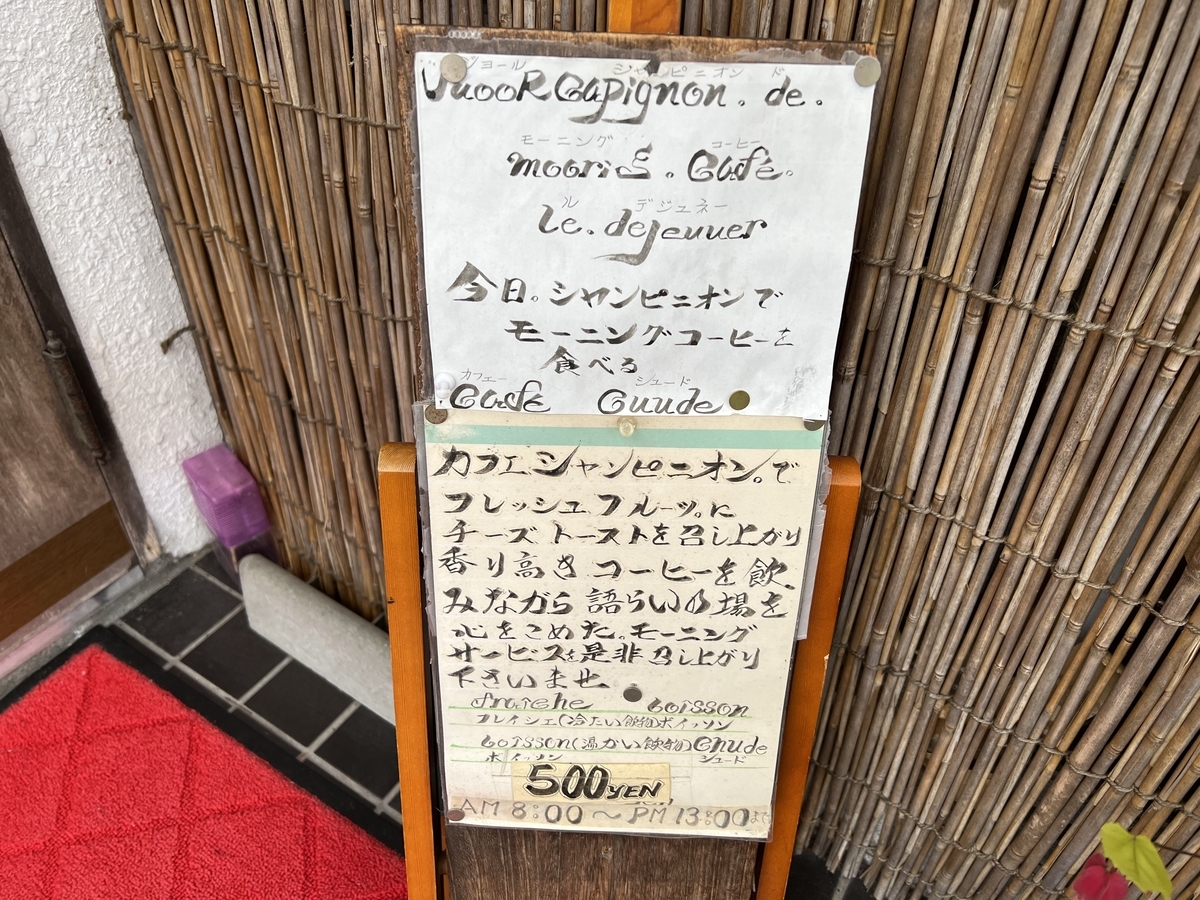 ジョール シャンピニオン ド
VuooR Capignon. de.
モーニング コーヒー
moorig. Café.
ル デジュネー
le. dejeuuer
今日。シャンピニオンで
モーニングコーヒーを
食べる
カフェー シュード
Café Cuude
カフェシャンピニオン。で
フレッシュフルーツ。に
チーズトーストを召し上がり
香り高き コーヒーを飲
みながら 語らいの場を
心をこめた。モーニング
サービスを是非召し上がり
下さいませ
fraiche boisson
フレイシェ(冷たい飲物)ボイッソン
boisson(温かい飲物)Chude
ボイッソン シュード
500YEN
AM 8:00 〜 PM 13:00まで